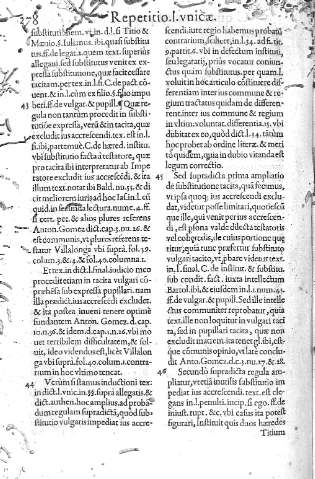 278 Repetitio.l.vnicæ.
substitutis sem. vt in.d.l.si Titio &
Mæuio.§.Iulian⁹. ibi. quasi substitu
tus.ff.de legat.2. quem text. superius
allegaui. sed substitutus venit ex ex-
pressa substitutione, quæ facit cessare
tacitam, per tex.in l.
43 beri.ff.de vulgar.& pupill. Quæ re-
gula non tantum procedit in substi-
tutione expressa, verū & in tacita, quæ
excludit ius accrescendi. tex. est in l.
si ibi, partemue. C. de hæred. institu.
vbi substitutio facta à testatore, quæ
pro tacita ibi interpretatur ab Impe-
ratore excludit ius accrescendi, & ita
illum text. notat ibi Bald. nu.15. & di
cit meliorem iuris ad hoc Ias. in l.
quid in secunda lectura nume.4.ff.
si cert. pet. & alios plures referens
Anton. Gomez dict. cap. 5. nu. 26. &
est communis, vt plures referens te-
statur Villalonga vbi supra, fol. 39.
colum. 3. & 4. & fol. 40. columna 1.
Et tex. in dict. l. final. audicto mo
do procedit etiam in tacita vulgari cō-
præhēsa sub expressa pupillari. nam
illa prædict. ius accrescendi excludet.
& ita postea inueni tenere optimè
fundantem Anton. Gomez. d. cap.
10. nu. 36. & idem d. cap. 10. nu. 26. vbi mo
uet terribilem difficultatem, & sol-
uit, ideo videndus est, licèt Villalon
ga vbi supra fol. 40. colum. 2. contra-
rium in hoc vltimo teneat.
44 Verùm fortamus inductioni tex-
in dict. l. vnic. in. §§. supra allegatis, &
dict. authen. hoc amplius, ad proban
dum regulam supradictā, quòd sub-
stitutio vulgaris impediat ius accre-
scendi iure regio habemus probatū
contrarium, scilicet, in l. 34. adfi. tit.
9. partit. 6. vbi in defectum instituti,
seu legatarij, prius vocatur coniun-
ctus quàm substitutus. per quam l.
voluit in hoc articulo constituere dif-
ferentiam inter ius commune & re-
gium tractatus quidam de differen-
rent. inter ius commune & regium
in vltim. voluntat. differentia. 11. vbi
dubitat ex 60. quòd dict. l. 34. titūm
hoc probet ab ordine literæ. & meri
tò quidem, quia in dubio vitanda est
legum correctio.
45 Sed supradicta prima ampliatio
de substitutione tacita, quā fecimus,
vt ipsa quoq; ius accrescendi exclu-
dat, videtur posse limitari, quoties cū
que ille, qui venit per ius accrescen-
di, est psona valde dilecta testatoris
vel cohæredis, de cuius portione quæ
ritur, quia tunc præfertur substituto
vulgari tacito, vt pbare videtur text.
in. l. final. C. de institut. & substitu.
sub condit. fact. iuxta intellectum
Bartol. ibi, & eiusdem in l. 1. num. 45.
ff. de vulgar. & pupill. Sed ille intelle
ctus communiter reprobatur, quia
text. ille non loquitur in vulgari taci
ta, sed in pupillari tacita, quæ non
excludit matrem. ita tenet gl. ibi, est-
que cōmunis opinio, vt latè conclu-
dit Anto. Gomez. d. c. 3. nu. 17. & 18.
46 Secundò supradicta regula am-
pliatur, vt etiā inutilis substitutio im
pediat ius accrescendi. text. est ele-
gans in. l. penulti. incip. si ego. ff. de
iniust. rupt. &c. vbi casus ita potest
figurari, Instituit quis duos hæredes
Titium